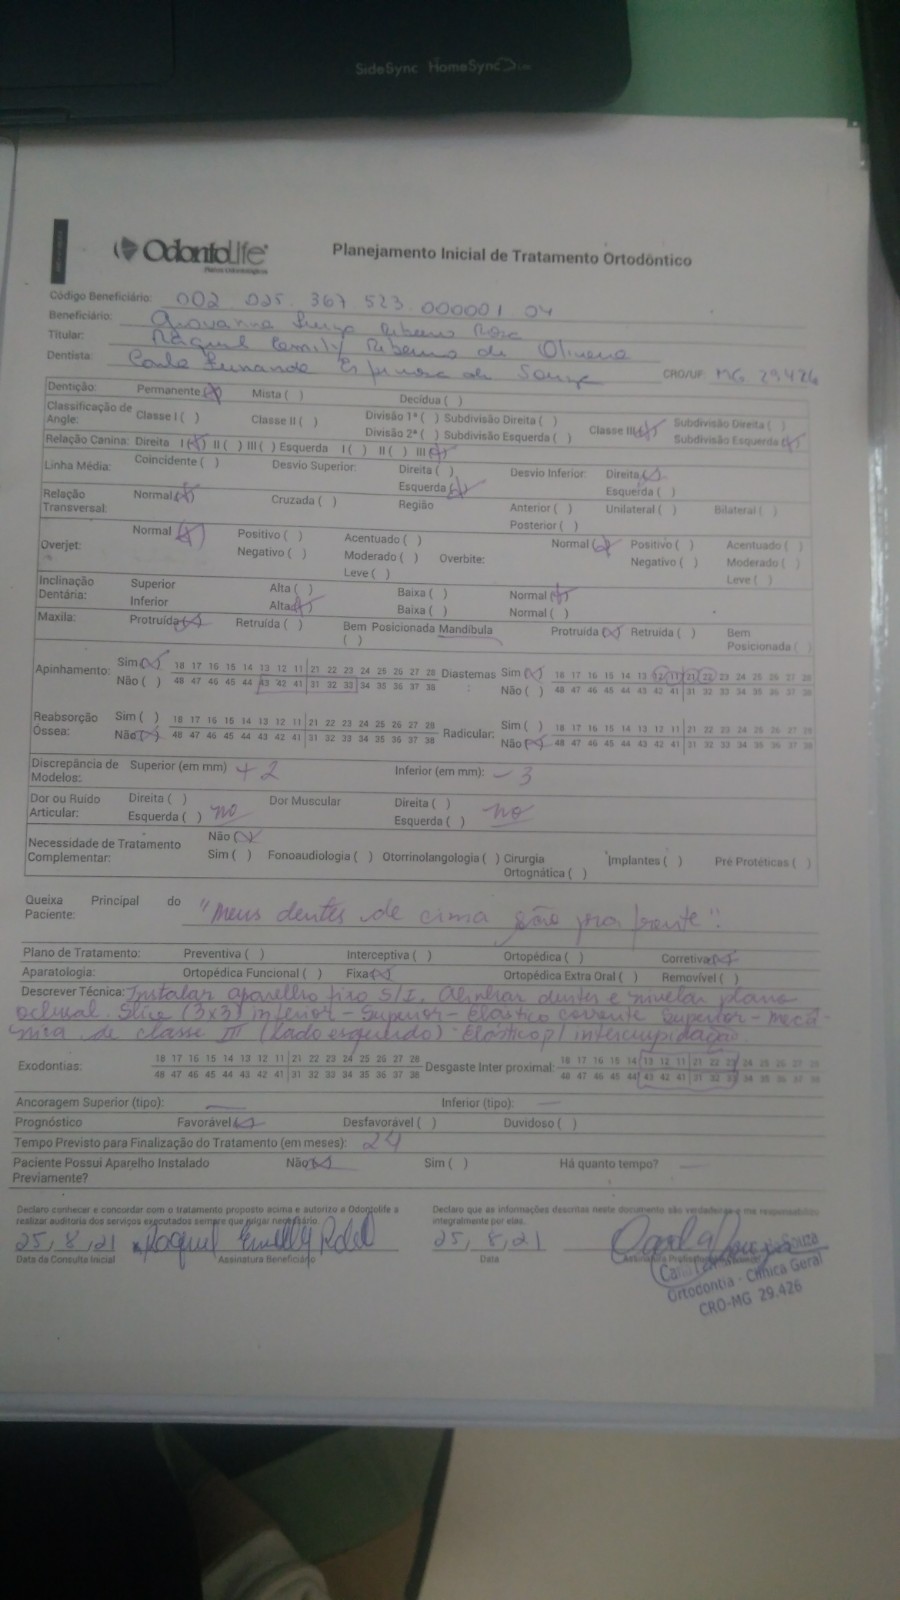 SideSync HomeSync
OdontoLife
Planos Odontológicos
Planejamento Inicial de Tratamento Ortodôntico
Código Beneficiário: 002 025. 367 523.000001 04
Beneficiário: Giovanna Ribeiro Rosa
Titular: Raquel Ribeiro de Oliveira
Dentista: Carla Fernanda Espinosa de Souza CRO/UF: MG 29426
Dentição: Permanente (x) Mista ( ) Decídua ( )
Classificação de Angle: Classe I ( ) Classe II ( ) Divisão 1ª ( ) Subdivisão Direita ( ) Classe III (x) Subdivisão Direita ( )
Divisão 2ª ( ) Subdivisão Esquerda ( ) Subdivisão Esquerda (x)
Relação Canina: Direita I (x) II ( ) III ( ) Esquerda I ( ) II ( ) III (x)
Linha Média: Coincidente ( ) Desvio Superior: Direita ( ) Desvio Inferior: Direita (x)
Esquerda (x) Esquerda ( )
Relação Transversal: Normal (x) Cruzada ( ) Região Anterior ( ) Unilateral ( ) Bilateral ( )
Posterior ( )
Overjet: Normal (x) Positivo ( ) Acentuado ( ) Overbite: Normal (x) Positivo ( ) Acentuado ( )
Negativo ( ) Moderado ( ) Negativo ( ) Moderado ( )
Leve ( ) Leve ( )
Inclinação Dentária: Superior Alta ( ) Baixa ( ) Normal (x)
Inferior Alta (x) Baixa ( ) Normal ( )
Maxila: Protruída (x) Retruída ( ) Bem Posicionada ( ) Mandíbula Protruída (x) Retruída ( ) Bem Posicionada ( )
Apinhamento: Sim (x) 18 17 16 15 14 13 12 11 21 22 23 24 25 26 27 28 Diastemas Sim (x) 18 17 16 15 14 13 12 11 21 22 23 24 25 26 27 28
Não ( ) 48 47 46 45 44 43 42 41 31 32 33 34 35 36 37 38 Não ( ) 48 47 46 45 44 43 42 41 31 32 33 34 35 36 37 38
Reabsorção Óssea: Sim ( ) 18 17 16 15 14 13 12 11 21 22 23 24 25 26 27 28 Radicular: Sim ( ) 18 17 16 15 14 13 12 11 21 22 23 24 25 26 27 28
Não (x) 48 47 46 45 44 43 42 41 31 32 33 34 35 36 37 38 Não (x) 48 47 46 45 44 43 42 41 31 32 33 34 35 36 37 38
Discrepância de Modelos: Superior (em mm) + 2 Inferior (em mm): - 3
Dor ou Ruído Articular: Direita ( ) Dor Muscular Direita ( )
Esquerda ( ) no Esquerda ( ) no
Necessidade de Tratamento Complementar: Não (x)
Sim ( ) Fonoaudiologia ( ) Otorrinolangologia ( ) Cirurgia Ortognática ( ) Implantes ( ) Pré Protéticas ( )
Queixa Principal do Paciente: "Meus dentes de cima são pra frente".
Plano de Tratamento: Preventiva ( ) Interceptiva ( ) Ortopédica ( ) Corretiva (x)
Aparatologia: Ortopédica Funcional ( ) Fixa (x) Ortopédica Extra Oral ( ) Removível ( )
Descrever Técnica: Instalar aparelho fixo S/I. Alinhar dentes e nivelar plano
oclusal. Slice (3x3) inferior - Superior - Elástico corrente Superior - mecâ-
nica de classe III (lado esquerdo). Elástico p/ intercuspidação.
Exodontias: 18 17 16 15 14 13 12 11 21 22 23 24 25 26 27 28 Desgaste Inter proximal: 18 17 16 15 14 13 12 11 21 22 23 24 25 26 27 28
48 47 46 45 44 43 42 41 31 32 33 34 35 36 37 38 48 47 46 45 44 43 42 41 31 32 33 34 35 36 37 38
Ancoragem Superior (tipo): — Inferior (tipo): —
Prognóstico Favorável (x) Desfavorável ( ) Duvidoso ( )
Tempo Previsto para Finalização do Tratamento (em meses): 24
Paciente Possui Aparelho Instalado Previamente? Não (x) Sim ( ) Há quanto tempo? —
Declaro conhecer e concordar com o tratamento proposto acima e autorizo a Odontolife a realizar auditoria dos serviços executados sempre que julgar necessário.
Declaro que as informações descritas neste documento são verdadeiras e me responsabilizo integralmente por elas.
25, 8, 21 Raquel
Data da Consulta Inicial Assinatura Beneficiário
25, 8, 21
Data
Souza
Ortodontia - Clínica Geral
CRO-MG 29.426